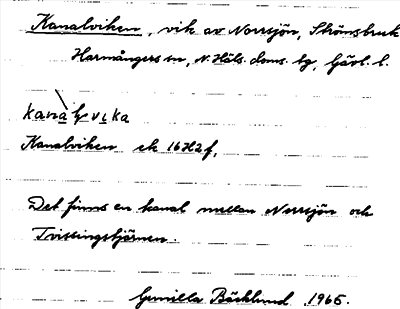 Kanalviken, vik av Norrsjön, Strömsbruk
Harmångers sn, N. Häls. doms. tg, Gävl. l.
Kanalviken ek 16H2f,
Det finns en kanal mellan Norrsjön och
Tvistingstjärnen.
Gunilla Bäcklund 1965.